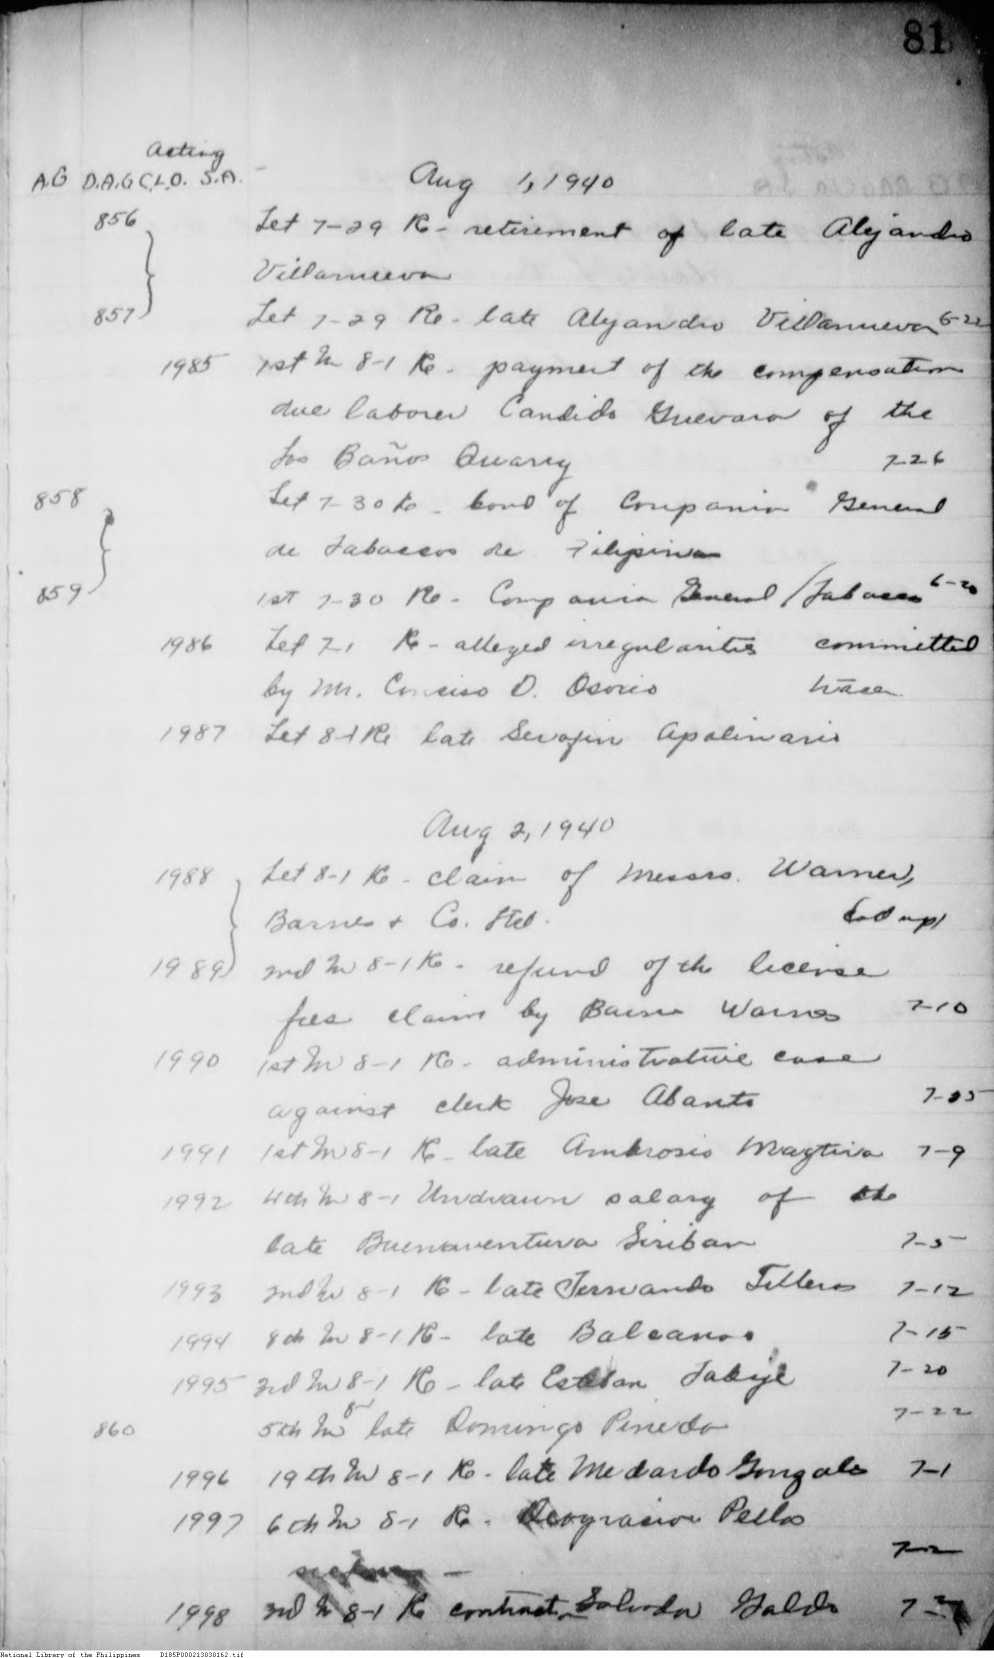 81
Acting
A.G D.A.G C.L.O. S.A.
Aug 1, 1940
856 Let 7-29 Re - retirement of late Alejandro
Villanueva
857 Let 7-29 Re - late Alejandro Villanueva 6-22
1985 1st In 8-1 Re - payment of the compensation
due laborer Candido Guevara of the
Los Baños Quarry 7-26
858 Let 7-30 Re - bond of Compania General
de Tabaccos de Filipinas
859 1st 7-30 Re - Compania General / Tabacco 6-20
1986 Let Re - alleged irregularities committed
by Mr. D. Osorio
1987 Let 8-1 Re late Serafin Apolinario
Aug 2, 1940
1988 Let 8-1 Re - claim of Messrs. Warner,
Barnes & Co. Ltd.
1989 2nd In 8-1 Re - refund of the license
fees claim by Barnes Warnes 7-10
1990 1st In 8-1 Re - administrative case
against clerk Jose Abanto
1991 1st In 8-1 Re - late Ambrosio Magtira 7-9
1992 4th In 8-1 Undrawn salary of the
late Buenaventura Siriban 7-5
1993 2nd In 8-1 Re - late Fernando Telleros 7-12
1994 8th In 8-1 Re - late Balcanos 7-15
1995 3rd In 8-1 Re - late Esteban 7-20
860 5th In 8- late Domingo Pineda 7-22
1996 19th In 8-1 Re - late Medardo Gonzales 7-1
1997 6th In 8-1 Re - Deogracias Pellos
7-2
1998 3rd In 8-1 Re contract - Salvador Galdo
National Library of the Philippines D185P000213030162.tif